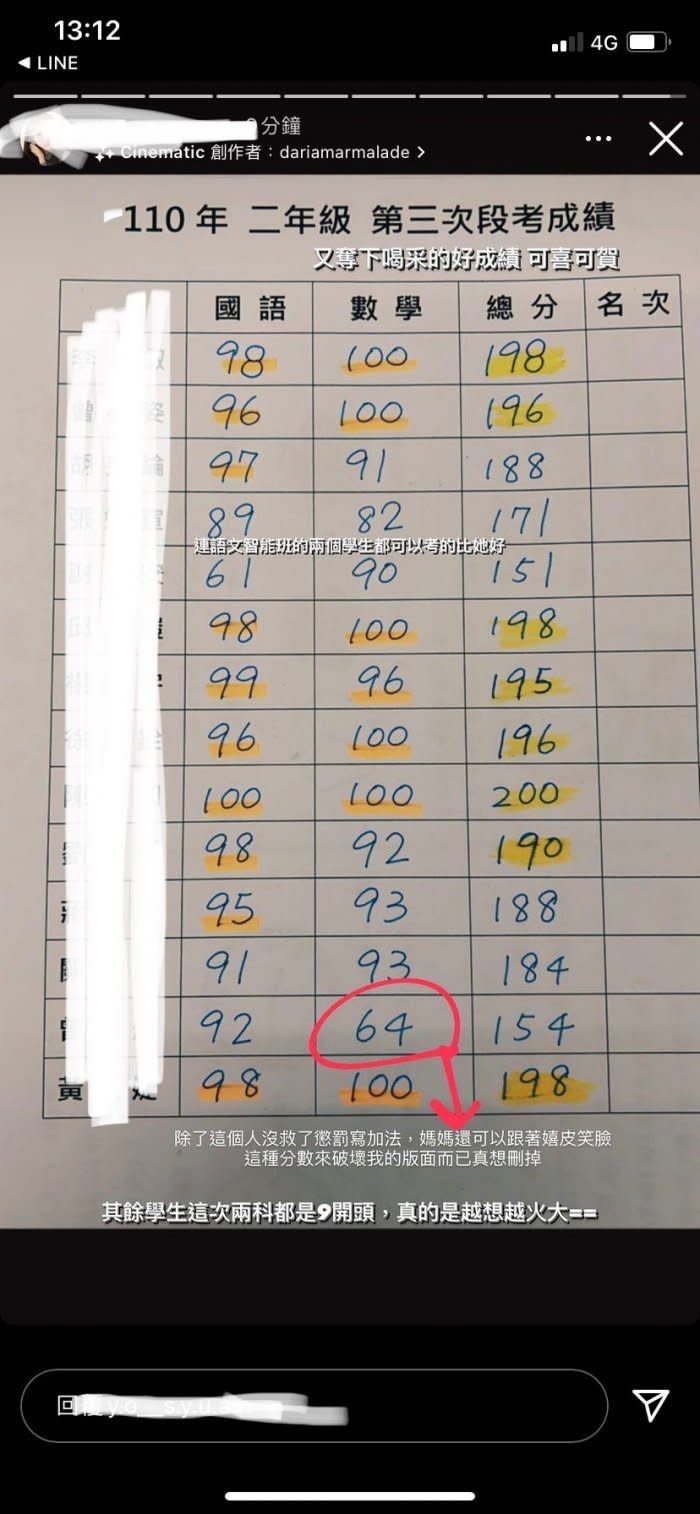 13:12
4G
◀ LINE
分鐘
Cinematic 創作者：dariamarmalade >
110 年 二年級 第三次段考成績
又奪下喝采的好成績 可喜可賀
國語 數學 總分 名次
98 100 198
96 100 196
97 91 188
89 82 171
連語文智能班的兩個學生都可以考的比她好
61 90 151
98 100 198
99 96 195
96 100 196
100 100 200
98 92 190
95 93 188
91 93 184
92 64 154
黃 98 100 198
除了這個人沒救了懲罰寫加法，媽媽還可以跟著嬉皮笑臉
這種分數來破壞我的版面而已真想刪掉
其餘學生這次兩科都是9開頭，真的是越想越火大==
回覆